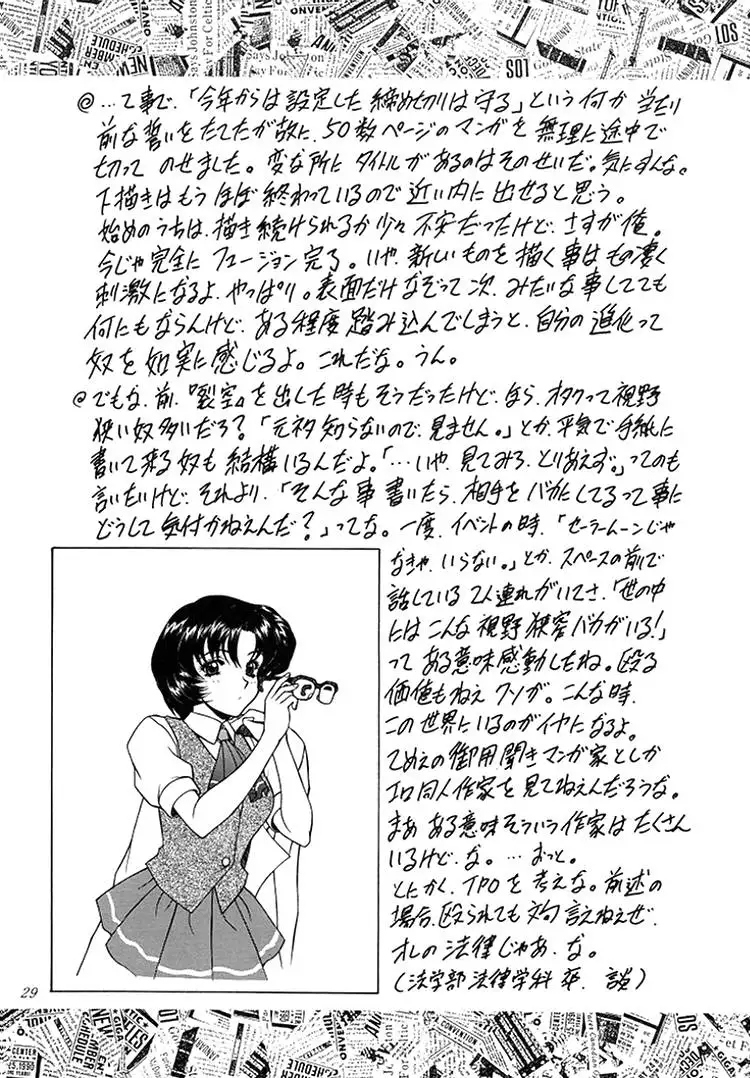 @ …て事で、「今年からは設定した締め切りは守る」という何か当たり
前な誓いをたてたが故に、50数ページのマンガを無理に途中で
切ってのせました。変な所にタイトルがあるのはそのせいだ。気にすんな。
下描きはもうほぼ終わっているので近い内に出せると思う。
始めのうちは、描き続けられるか少々不安だったけど、さすが俺。
今じゃ完全にフュージョン完了。いや、新しいものを描く事はもの凄く
刺激になるよ、やっぱり。表面だけなぞって次、みたいな事してても
何にもならんけど、ある程度踏み込んでしまうと、自分の進化って
奴を如実に感じるよ。これだな。うん。
@ でもな、前、『裂空』を出した時もそうだったけど、なら、オタクって視野
狭い奴多いだろ?「元ネタ知らないので、見ません。」とか、平気で手紙に
書いて来る奴も結構いるんだよ。「…いや、見てみろ、とりあえず。」ってのも
言いたいけど、それより、「そんな事書いたら、相手をバカにしてるって事に
どうして気付かねえんだ?」ってな。一度、イベントの時、「セーラームーンじゃ
なきゃ、いらない。」とか、スペースの前で
話している2人連れがいてさ、「世の中
にはこんな視野狭窄バカがいる!」
ってある意味感動したね。殴る
価値もねえクソが。こんな時、
この世界にいるのがイヤになるよ。
てめえの御用聞きマンガ家としか
エロ同人作家を見てねえんだろうな。
まあ ある意味そういう作家はたくさん
いるけど、な。…おっと。
とにかく、TPOを考えな。前述の
場合、殴られても文句言えねえぜ、
オレの法律じゃあ、な。
(法学部法律学科 卒、談)
29